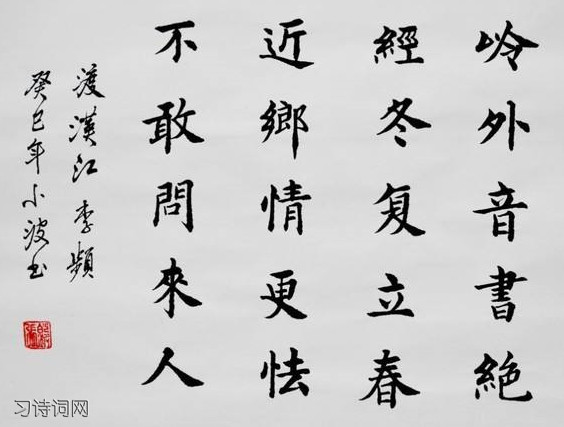 岭外音書絕
經冬复立春
近鄉情更怯
不敢問來人
渡漢江 李頻
癸巳年小波书
习诗词网